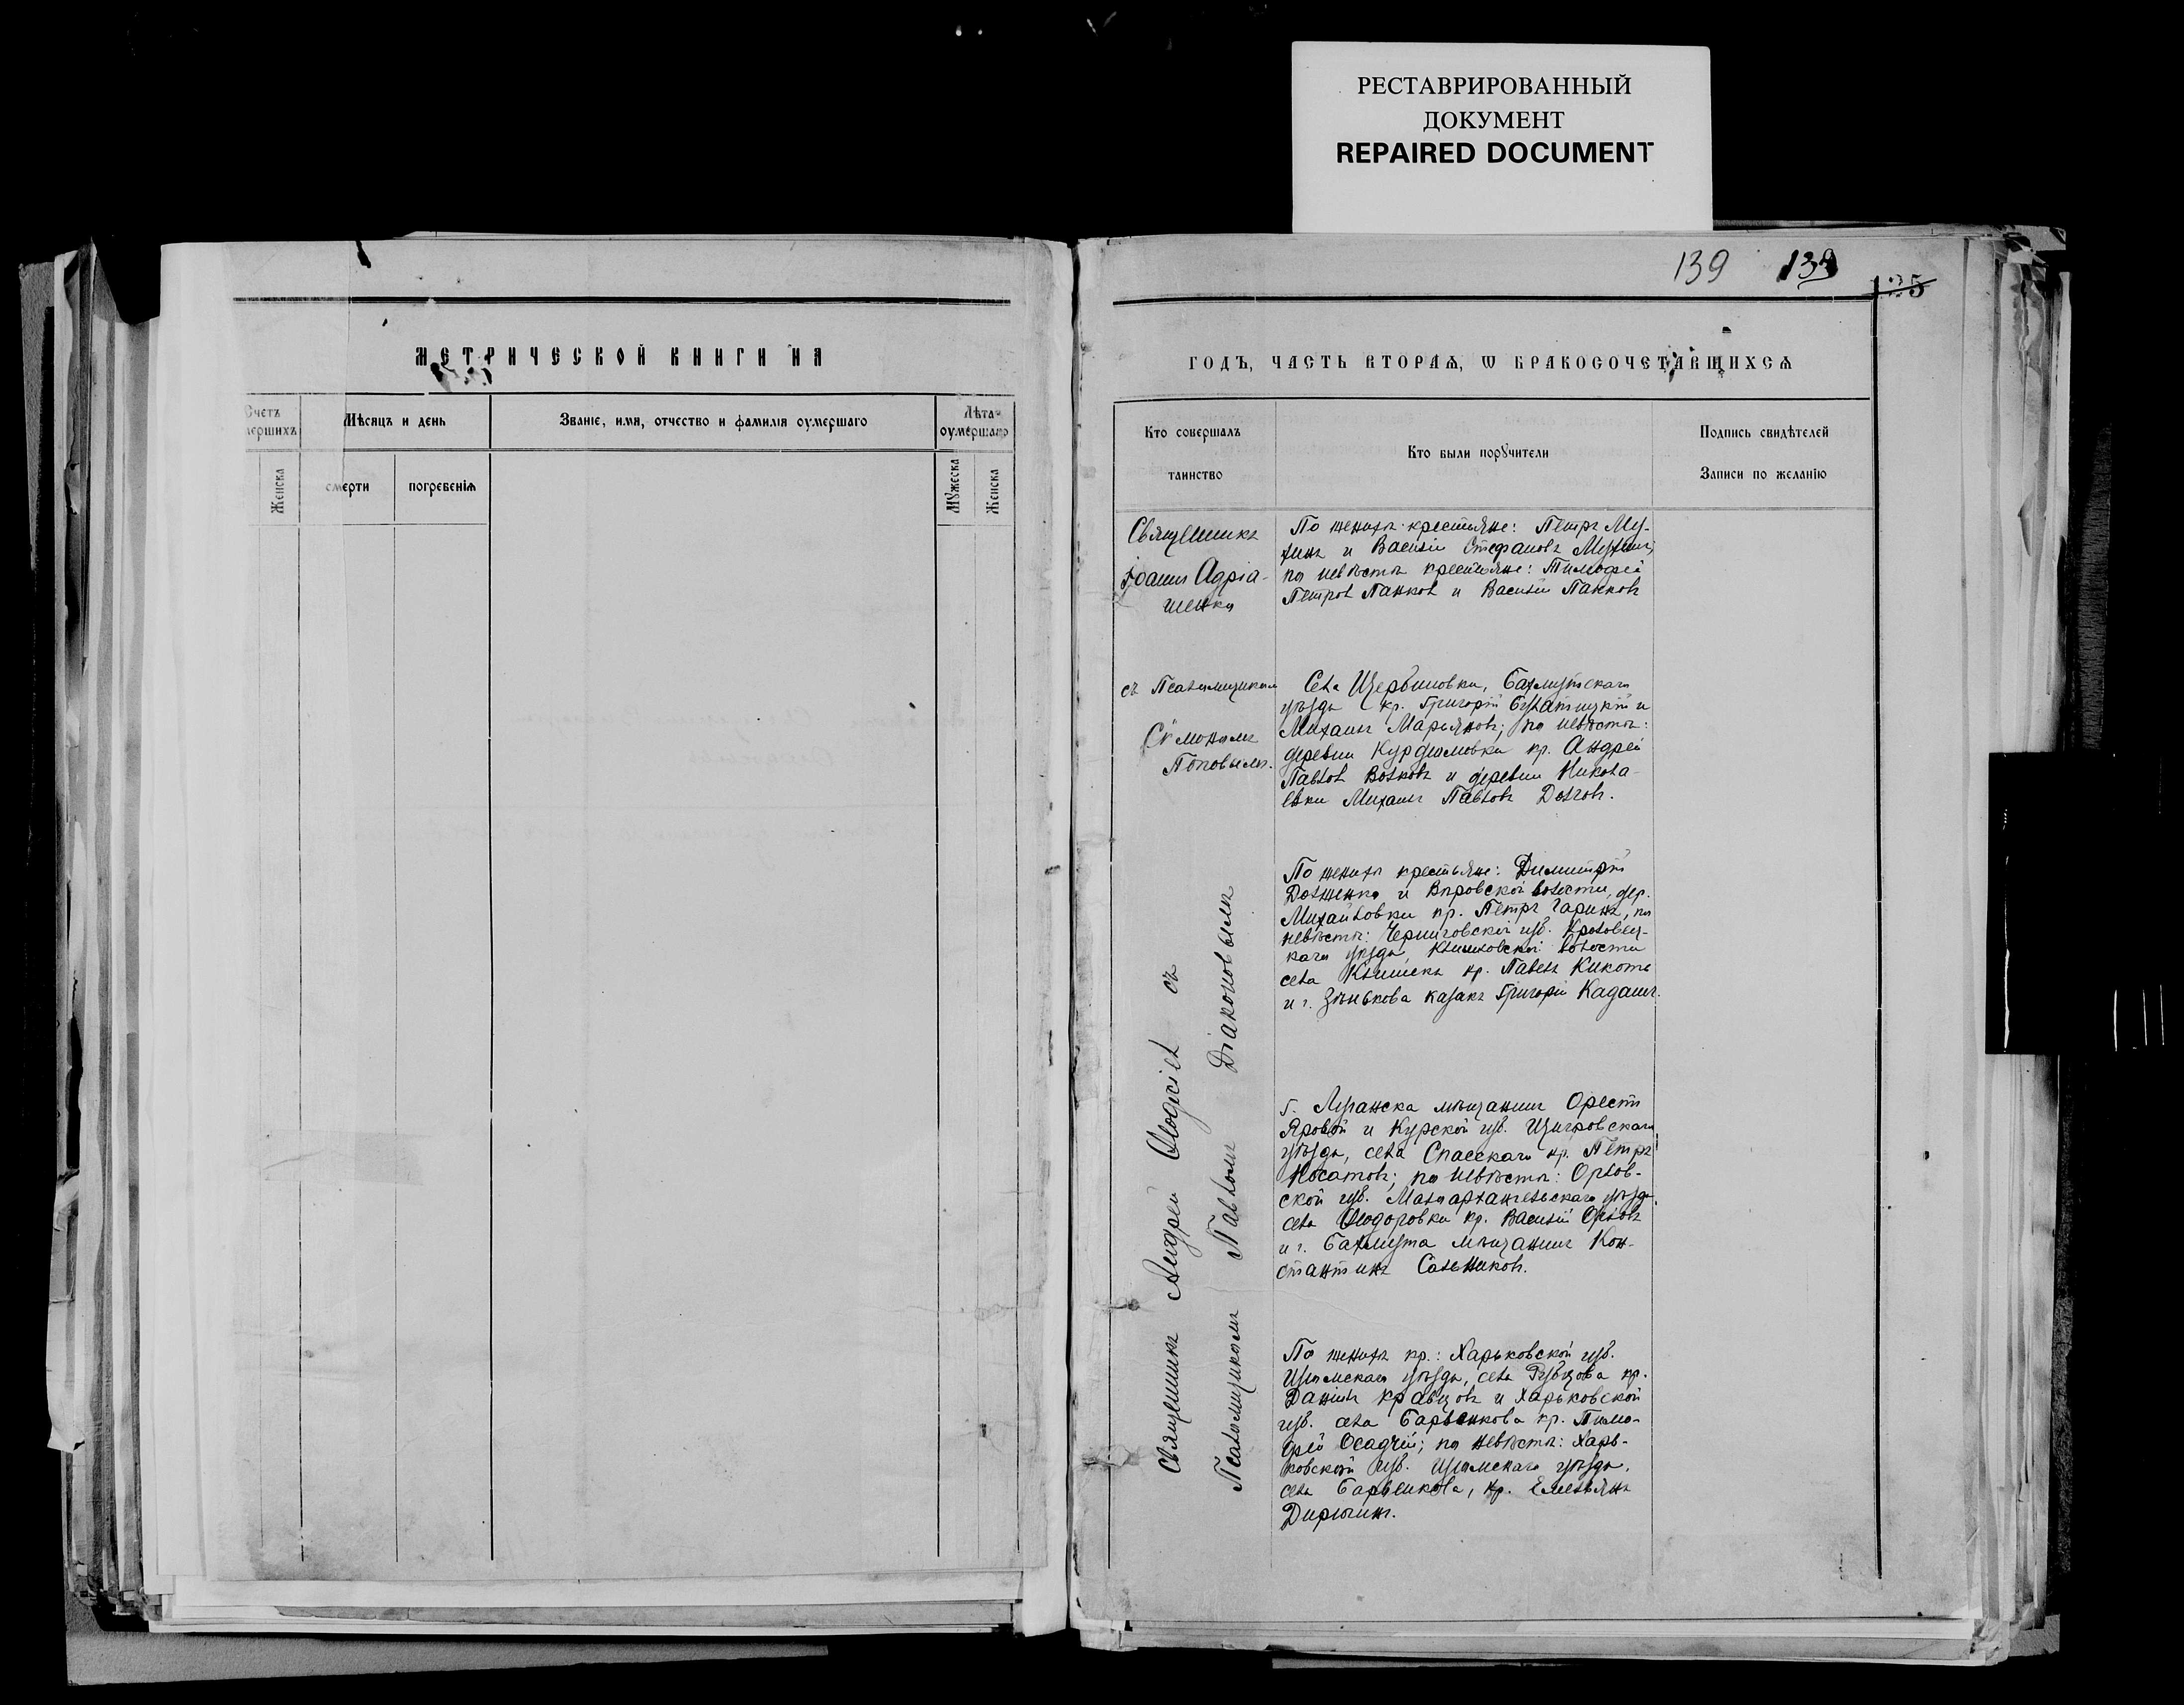 РЕСТАВРИРОВАННЫЙ
ДОКУМЕНТ
REPAIRED DOCUMENT
МЕТРИЧЕСКОЙ КНИГИ НА
Счетъ
мершихъ
Мѣсяцъ и день
Званіе, имя, отчество и фамилія оумершаго
Лѣта
оумершаго
Женска
смерти
погребенія
Мꙋжеска
Женска
139 139
135
ГОДЪ, ЧАСТЬ ВТОРАѦ, Ѡ БРАКОСОЧЕТАВШИХСѦ
Кто совершалъ
таинство
Кто были порꙋчители
Подпись свидѣтелей
Записи по желанію
Священникъ
Іоаннъ Адріа-
шенко
съ Псаломщикомъ
Сѵмономъ
Поповымъ.
Священникъ Андрей Ѳлоріевъ съ
Псаломщикомъ Павломъ Діаконовымъ
По женихѣ крестьяне: Петръ Му-
хинъ и Василій Стефановъ Мухинъ;
по невѣстѣ крестьяне: Тимоѳей
Петровъ Панковъ и Василій Панковъ
Села Щербиновки, Бахмутскаго
уѣзда кр. Григорій Булатицкій и
Михаилъ Марьяновъ; по невѣстѣ:
деревни Курдюмовки кр. Андрей
Павловъ Волковъ и деревни Никола-
евки Михаилъ Павловъ Долговъ.
По женихѣ крестьяне: Димитрій
Долженко и Вировской волости, дер.
Михайловки кр. Петръ Гаринъ, по
невѣстѣ: Черниговской губ. Кролевец-
каго уѣзда, Клишковской волости
села Клишекъ кр. Павелъ Кикоть
и г. Зѣнькова казакъ Григорій Кадашъ.
г. Луганска мѣщанинъ Орестъ
Яровой и Курской губ. Щигровскаго
уѣзда, села Спасскаго кр. Петръ
Носатовъ; по невѣстѣ: Орлов-
ской губ. Малоархангельскаго уѣзда,
села Ѳедоровки кр. Василій Орловъ
и г. Бахмута мѣщанинъ Кон-
стантинъ Сальниковъ.
По женихѣ кр.: Харьковской губ.
Изюмскаго уѣзда, села Рубцова кр.
Даніилъ Кравцовъ и Харьковской
губ. села Барвенкова кр. Тимо-
ѳей Осадчій; по невѣстѣ: Харь-
ковской губ. Изюмскаго уѣзда,
села Барвенкова, кр. Емельянъ
Дирюгинъ.